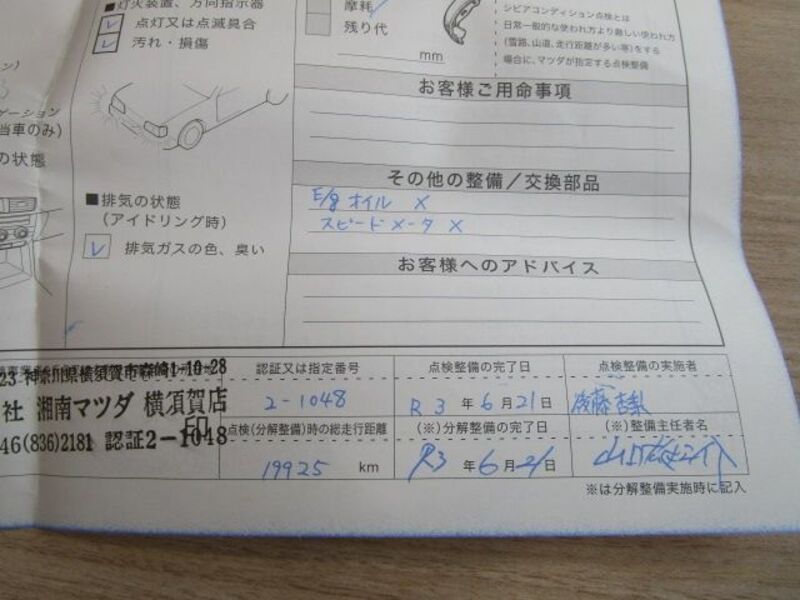 ■灯火装置、方向指示器
点灯又は点滅具合
汚れ・損傷
ーション
当車のみ)
の状態
■排気の状態
(アイドリング時)
排気ガスの色、臭い
摩耗
残り代
mm
シビアコンディション点検とは
日常一般的な使われ方より厳しい使われ方
(雪路、山道、走行距離が多い等)をする
場合に、マツダが指定する点検整備
お客様ご用命事項
その他の整備/交換部品
E/g オイル ×
スピードメータ ×
お客様へのアドバイス
23 神奈川県横須賀市森崎1-10-28
社 湘南マツダ 横須賀店
46(836)2181 認証2-1048
印
認証又は指定番号
2-1048
点検(分解整備)時の総走行距離
19925 km
点検整備の完了日
R3 年 6 月 21 日
(※)分解整備の完了日
R3 年 6 月 21 日
点検整備の実施者
(※)整備主任者名
※は分解整備実施時に記入